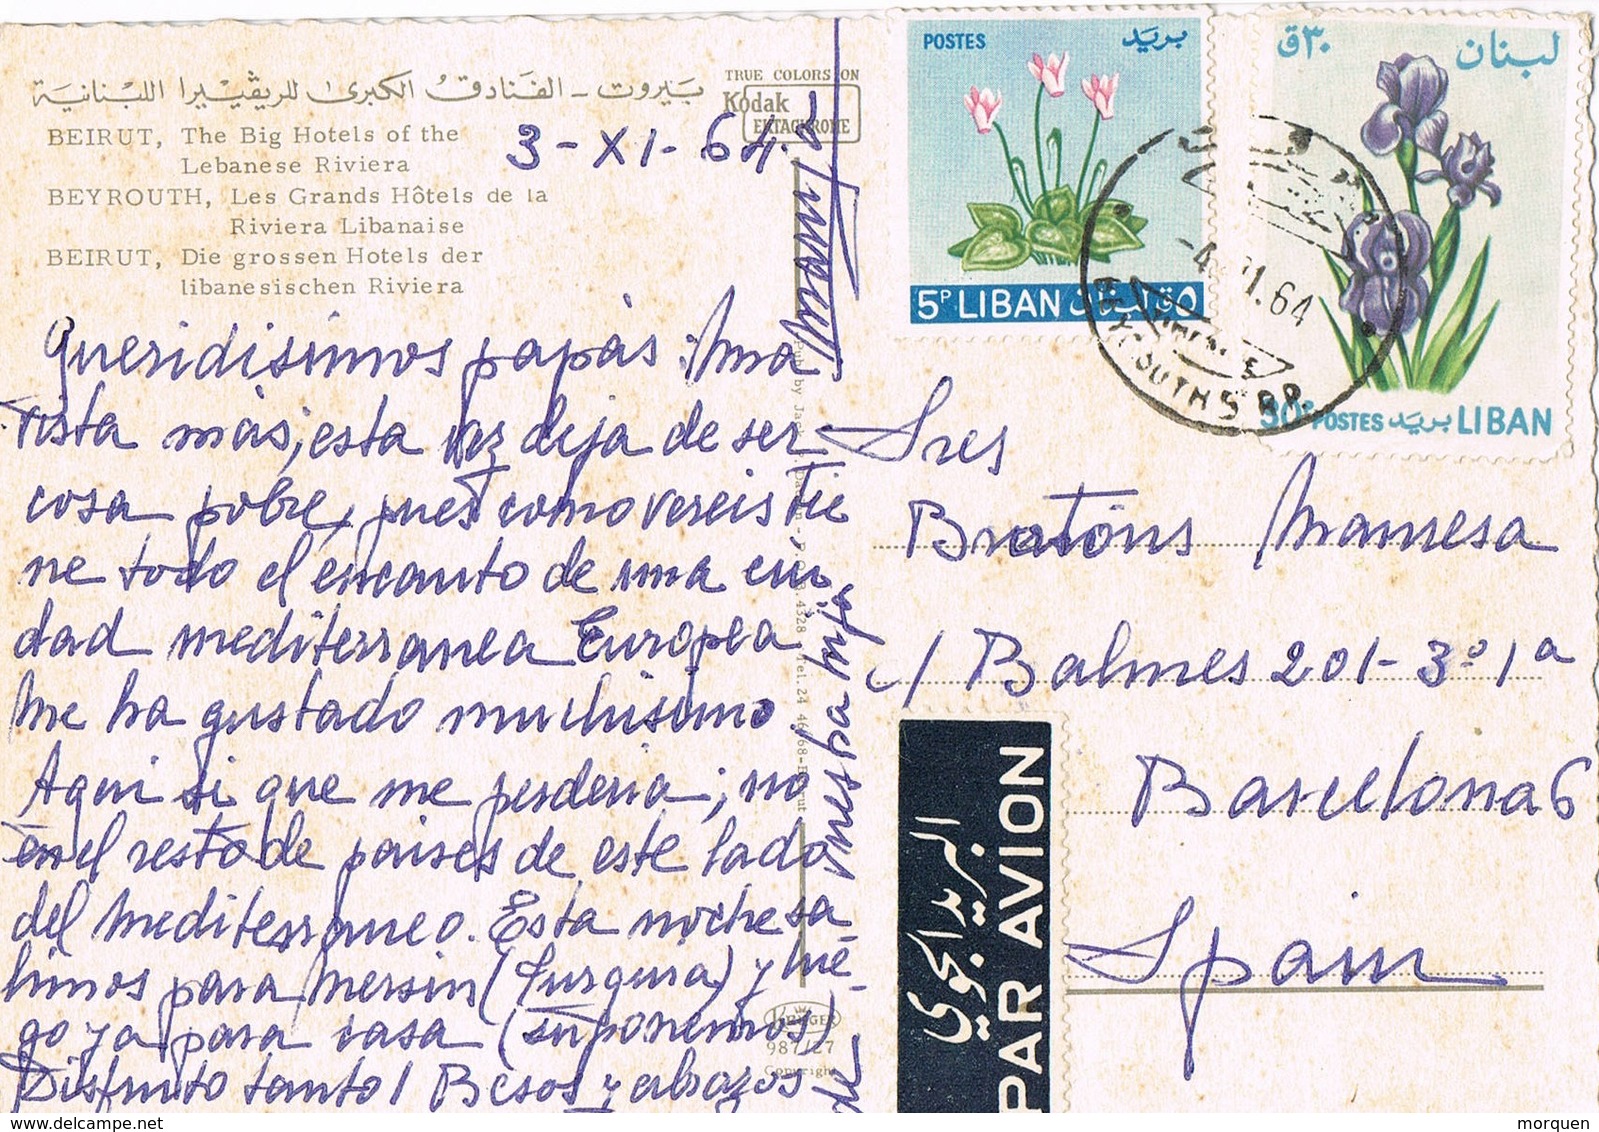 بيروت - الفنادق الكبرى للريڤييرا اللبنانية
BEIRUT, The Big Hotels of the
Lebanese Riviera
BEYROUTH, Les Grands Hôtels de la
Riviera Libanaise
BEIRUT, Die grossen Hotels der
libanesischen Riviera
TRUE COLORS ON
Kodak
EKTACHROME
3-XI-64
Queridisimos papás: Una
vista más, esta vez deja de ser
cosa pobre, pues como vereis tie
ne todo el encanto de una ciu
dad mediterranea Europea
Me ha gustado muchisimo
Aqui si que me perderia; no
en el resto de paises de este lado
del Mediterraneo. Esta noche sa
limos para Mersin (Turquia) y lue-
go ya para casa (suponemos)
Disfruto tanto! Besos y abrazos
de
vuestra hija
KRUGER
987/27
Copyright
POSTES بريد
5P LIBAN لبنان ق٥
لبنان ق٣٠
30P POSTES بريد LIBAN
BEYROUTH 5 R.P.
-4.XI.64
Sres
Bratóns Manresa
c/ Balmes 201-3º 1ª
Barcelona 6
Spain
البريد الجوي
PAR AVION
morquen